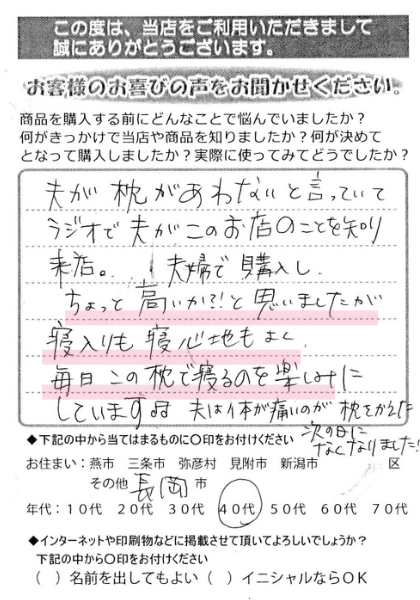 この度は、当店をご利用いただきまして
誠にありがとうございます。
お客様のお喜びの声をお聞かせください。
商品を購入する前にどんなことで悩んでいましたか？
何がきっかけで当店や商品を知りましたか？何が決めて
となって購入しましたか？実際に使ってみてどうでしたか？
夫が枕があわないと言っていて
ラジオで夫がこのお店のことを知り
来店。夫婦で購入し、
ちょっと高いか?!と思いましたが
寝入りも寝心地もよく
毎日この枕で寝るのを楽しみに
しています 夫は体が痛いのが枕をかえた
次の日に
なくなりました!
◆下記の中から当てはまるものに〇印をお付けください
お住まい：燕市 三条市 弥彦村 見附市 新潟市 区
その他 長岡 市
年代：10代 20代 30代 40代 50代 60代 70代
◆インターネットや印刷物などに掲載させて頂いてよろしいでしょうか？
下記の中から〇印をお付けください
（ ）名前を出してもよい（ ）イニシャルならOK